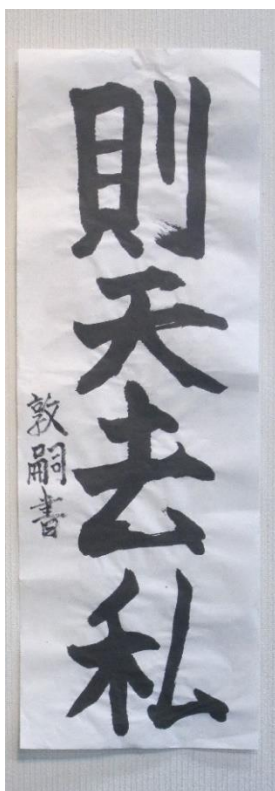 則天去私
敦嗣書